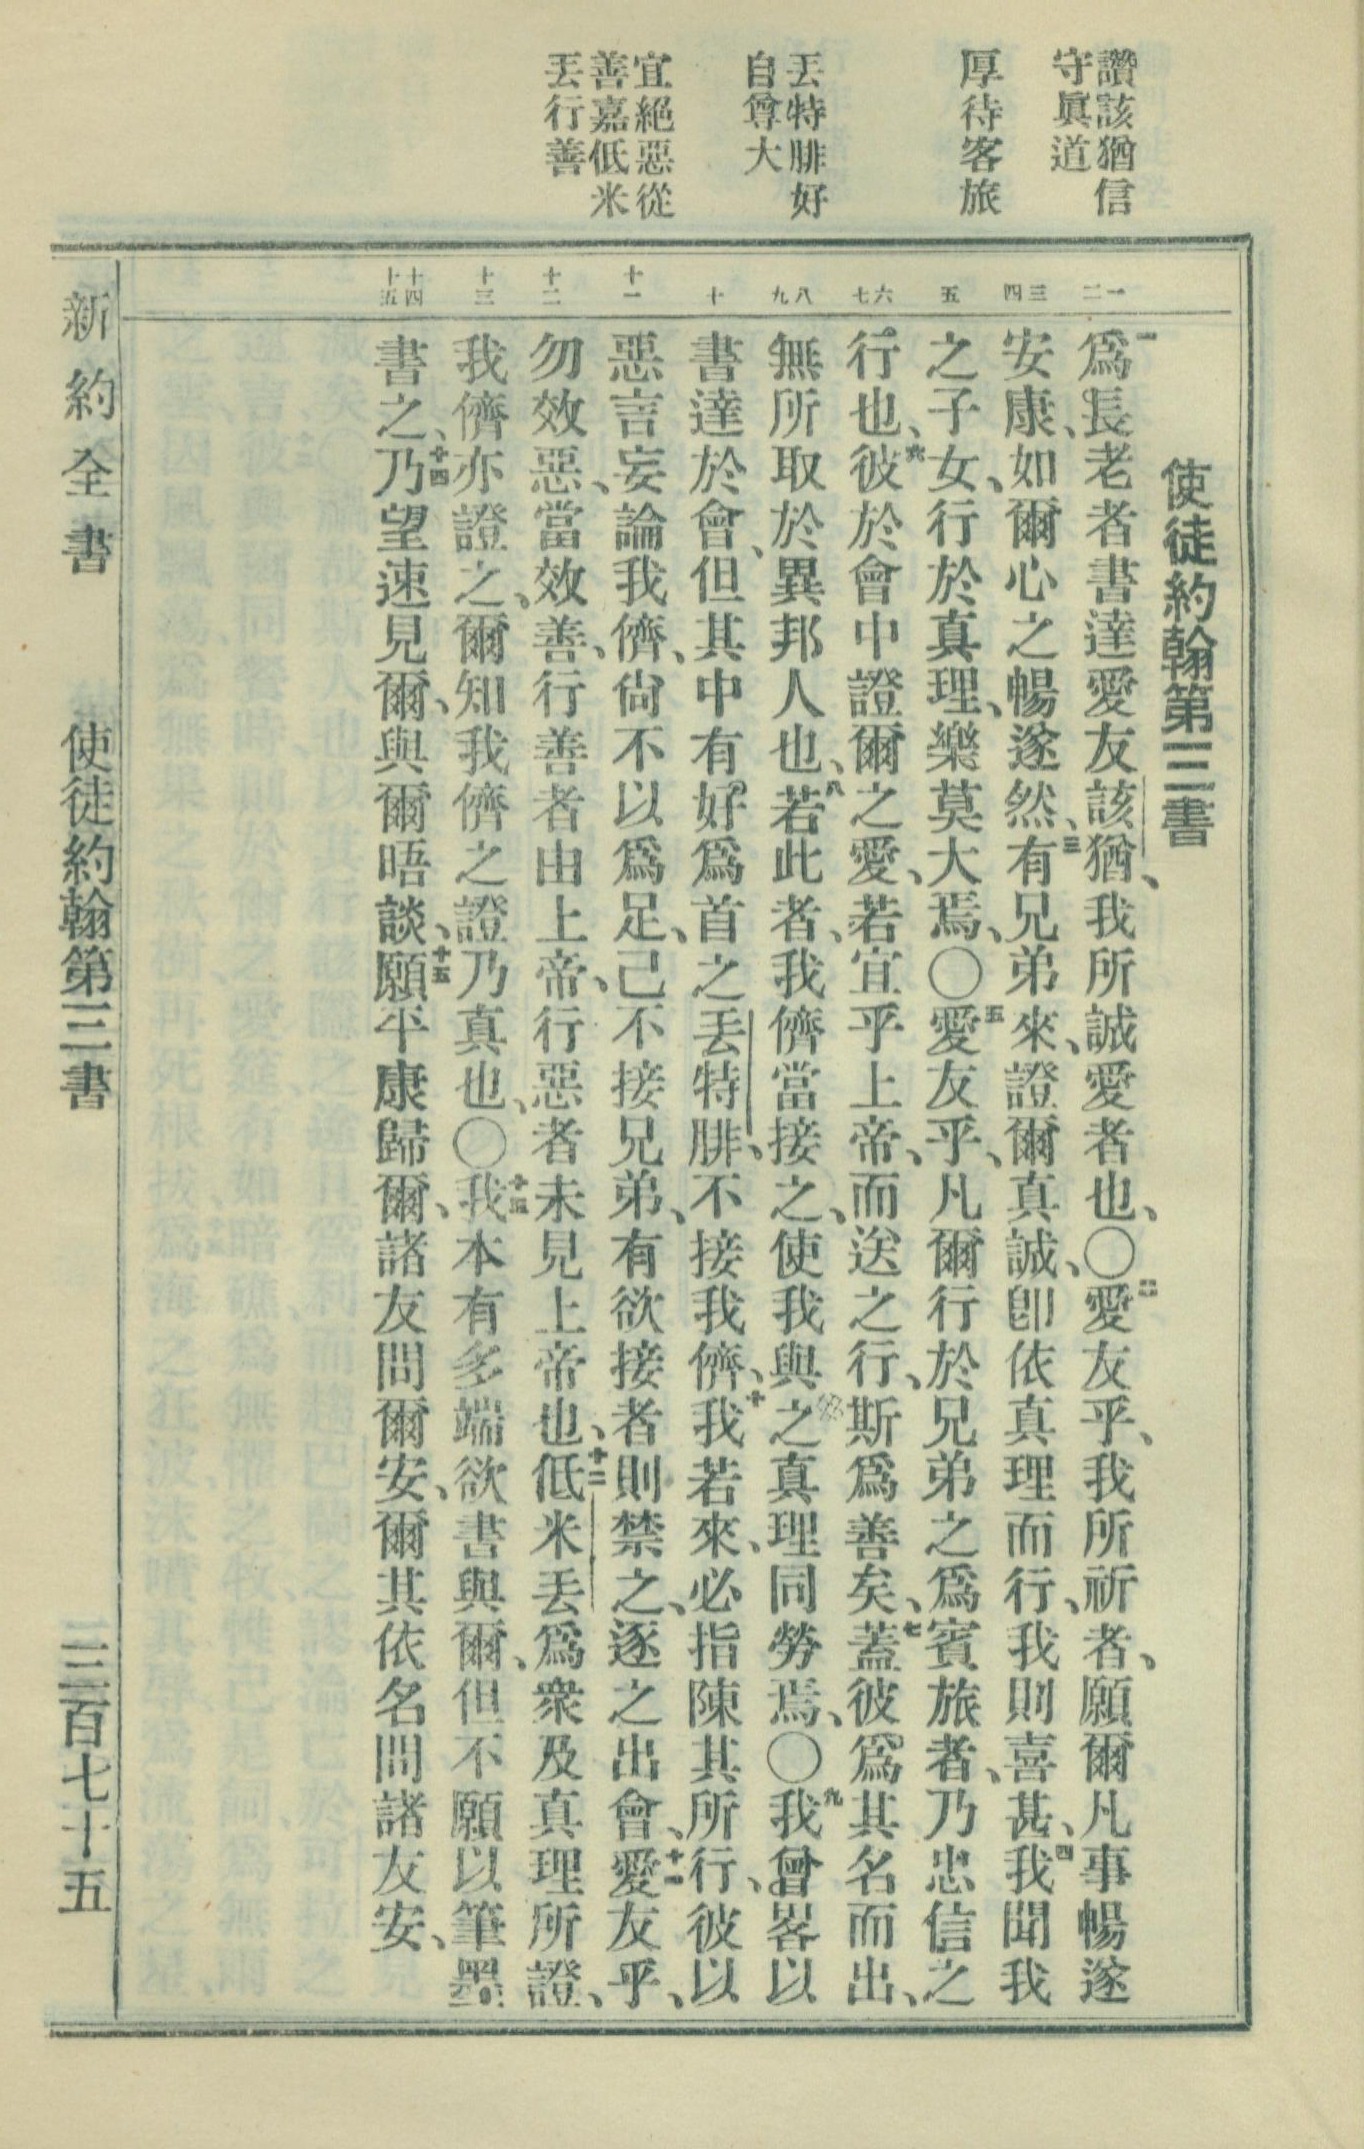 讚該猶信
守眞道
厚待客旅
丟特腓好
自尊大
宜絕惡從
善嘉低米
丟行善
一二
三四
五
六七
八九
十
十一
十二
十三
十四
十五
使徒約翰第三書
一爲長老者書達愛友該猶、我所誠愛者也、〇二愛友乎、我所祈者、願爾凡事暢遂
安康、如爾心之暢遂然、三有兄弟來、證爾真誠、卽依真理而行、我則喜甚、四我聞我
之子女、行於真理、樂莫大焉、〇五愛友乎、凡爾行於兄弟之爲賓旅者、乃忠信之
行也、六彼於會中證爾之愛、若宜乎上帝、而送之行、斯爲善矣、七蓋彼爲其名而出、
無所取於異邦人也、八若此者、我儕當接之、使我與之真理同勞焉、〇九我曾畧以
書達於會、但其中有好爲首之丟特腓、不接我儕、十我若來、必指陳其所行、彼以
惡言妄論我儕、尙不以爲足、己不接兄弟、有欲接者則禁之、逐之出會、十一愛友乎、
勿效惡、當效善、行善者由上帝、行惡者未見上帝也、十二低米丟爲衆及真理所證、
我儕亦證之、爾知我儕之證乃真也、〇十三我本有多端欲書與爾、但不願以筆墨
書之、十四乃望速見爾、與爾晤談、十五願平康歸爾、諸友問爾安、爾其依名問諸友安、
新約全書 使徒約翰第三書 三百七十五